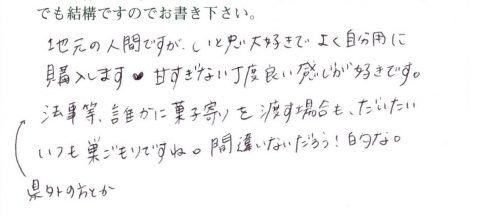 でも結構ですのでお書き下さい。
地元の人間ですが、いと忠大好きでよく自分用に
購入します♥ 甘すぎない丁度良い感じが好きです。
法事等、誰かに菓子寄りを渡す場合も、だいたい
いつも巣ごもりですね。間違いないだろう！的な。
県外の方とか